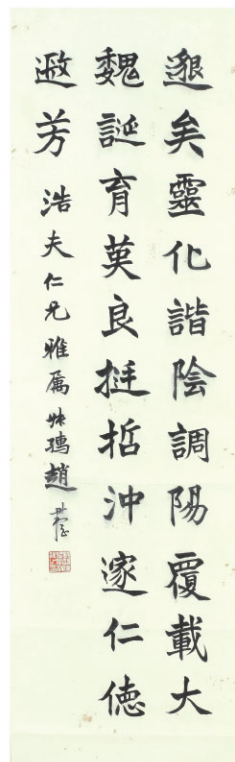 邈矣靈化諧陰調陽覆載大
魏誕育英良挺哲沖邃仁德
遐芳 浩夫仁兄雅属 趙